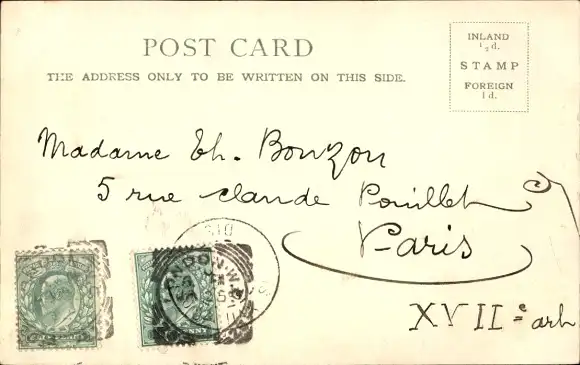 POST CARD
THE ADDRESS ONLY TO BE WRITTEN ON THIS SIDE.
INLAND
½d.
STAMP
FOREIGN
1d.
Madame Th. Bouzon
5 rue Claude Pouillet
Paris
XVII e arh
LONDON.W.